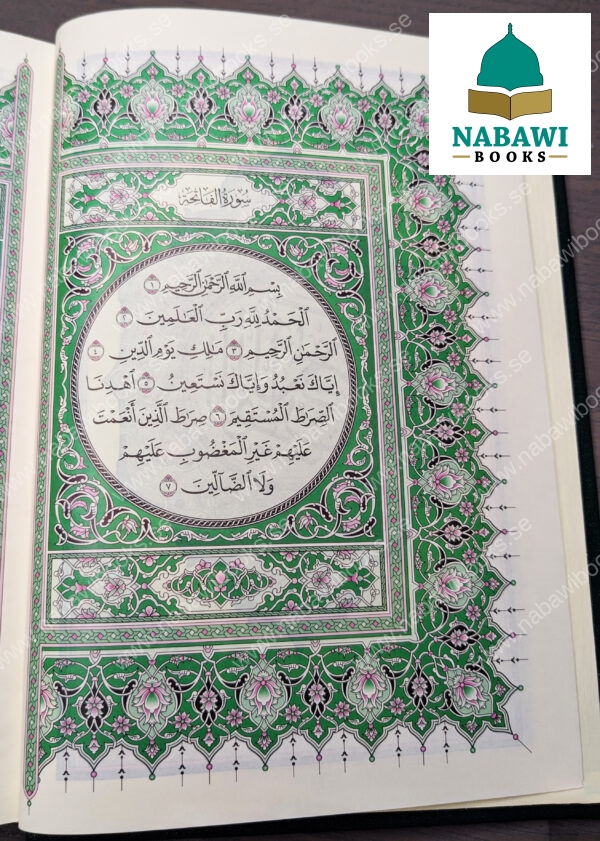 NABAWI
BOOKS
سُورَةُ الفَاتِحَةِ
بِسْمِ ٱللَّهِ ٱلرَّحْمَٰنِ ٱلرَّحِيمِ ١
ٱلْحَمْدُ لِلَّهِ رَبِّ ٱلْعَٰلَمِينَ ٢
ٱلرَّحْمَٰنِ ٱلرَّحِيمِ ٣ مَٰلِكِ يَوْمِ ٱلدِّينِ ٤
إِيَّاكَ نَعْبُدُ وَإِيَّاكَ نَسْتَعِينُ ٥ ٱهْدِنَا
ٱلصِّرَٰطَ ٱلْمُسْتَقِيمَ ٦ صِرَٰطَ ٱلَّذِينَ أَنْعَمْتَ
عَلَيْهِمْ غَيْرِ ٱلْمَغْضُوبِ عَلَيْهِمْ
وَلَا ٱلضَّآلِّينَ ٧
www.nabawibooks.se